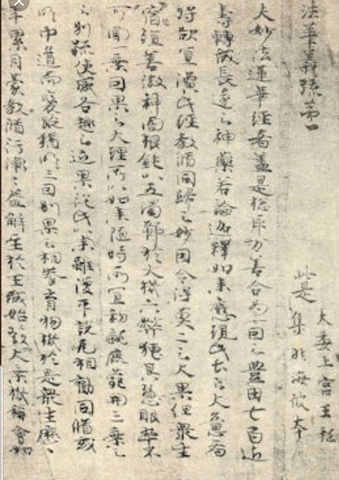 法華義疏第一
此是
大委上宮王私
集非海彼本
夫妙法蓮華經者蓋是惣取万善合為一因之豊田七百近
壽轉成長遠之神藥若論迦釋如來應現此土之大意者
將欲宜演此經教脩同歸之妙因令得莫二之大果但衆生
宿殖善微神闇根鈍以五濁鄣於大機六弊掩其慧眼卒不
可聞一乘因果之大理所以如來隨時所宜初就鹿菀開三乘之
別疏使感各趣之近果從此以來雖復平說无相勸同脩或
明中道而褒貶猶明三因別果之相養育物機於是衆生歷
年累月蒙教脩行漸〻益解至於王城始發大乘機稱會如